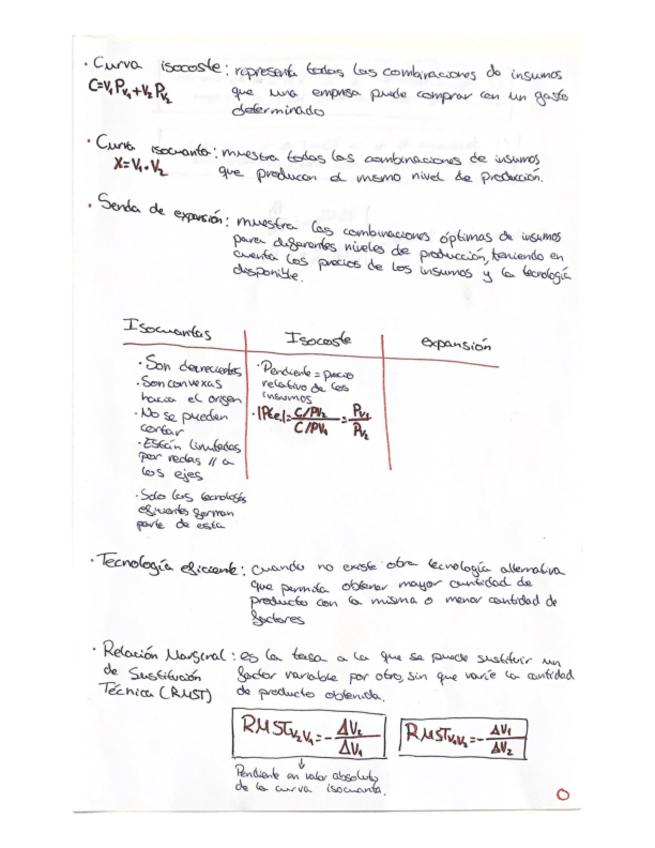 · Curva isocoste: representa todas las combinaciones de insumos
C=V₁PV₁+V₂PV₂ que una empresa puede comprar con un gasto
determinado
· Curva isocuanta: muestra todas las combinaciones de insumos
X=V₁·V₂ que producen el mismo nivel de producción.
· Senda de expansión: muestra las combinaciones óptimas de insumos
para diferentes niveles de producción, teniendo en
cuenta los precios de los insumos y la tecnología
disponible.
Isocuantas
· Son decrecientes
· Son convexas
hacia el origen
· No se pueden
cortar
· Están limitadas
por rectas // a
los ejes
· Solo las tecnologías
eficientes forman
parte de esta
Isocoste
· Pendiente = precio
relativo de los
insumos
· |Pte.|= C/PV₂ / C/PV₁ = PV₁ / PV₂
expansión
· Tecnología eficiente: cuando no existe otra tecnología alternativa
que permita obtener mayor cantidad de
producto con la misma o menor cantidad de
factores
· Relación Marginal: es la tasa a la que se puede sustituir un
de Sustitución factor variable por otro, sin que varíe la cantidad
Técnica (RMST) de producto obtenida.
RMSTV₂V₁=- ΔV₂/ΔV₁ RMSTV₁V₂=- ΔV₁/ΔV₂
↓
Pendiente en valor absoluto
de la curva isocuanta.